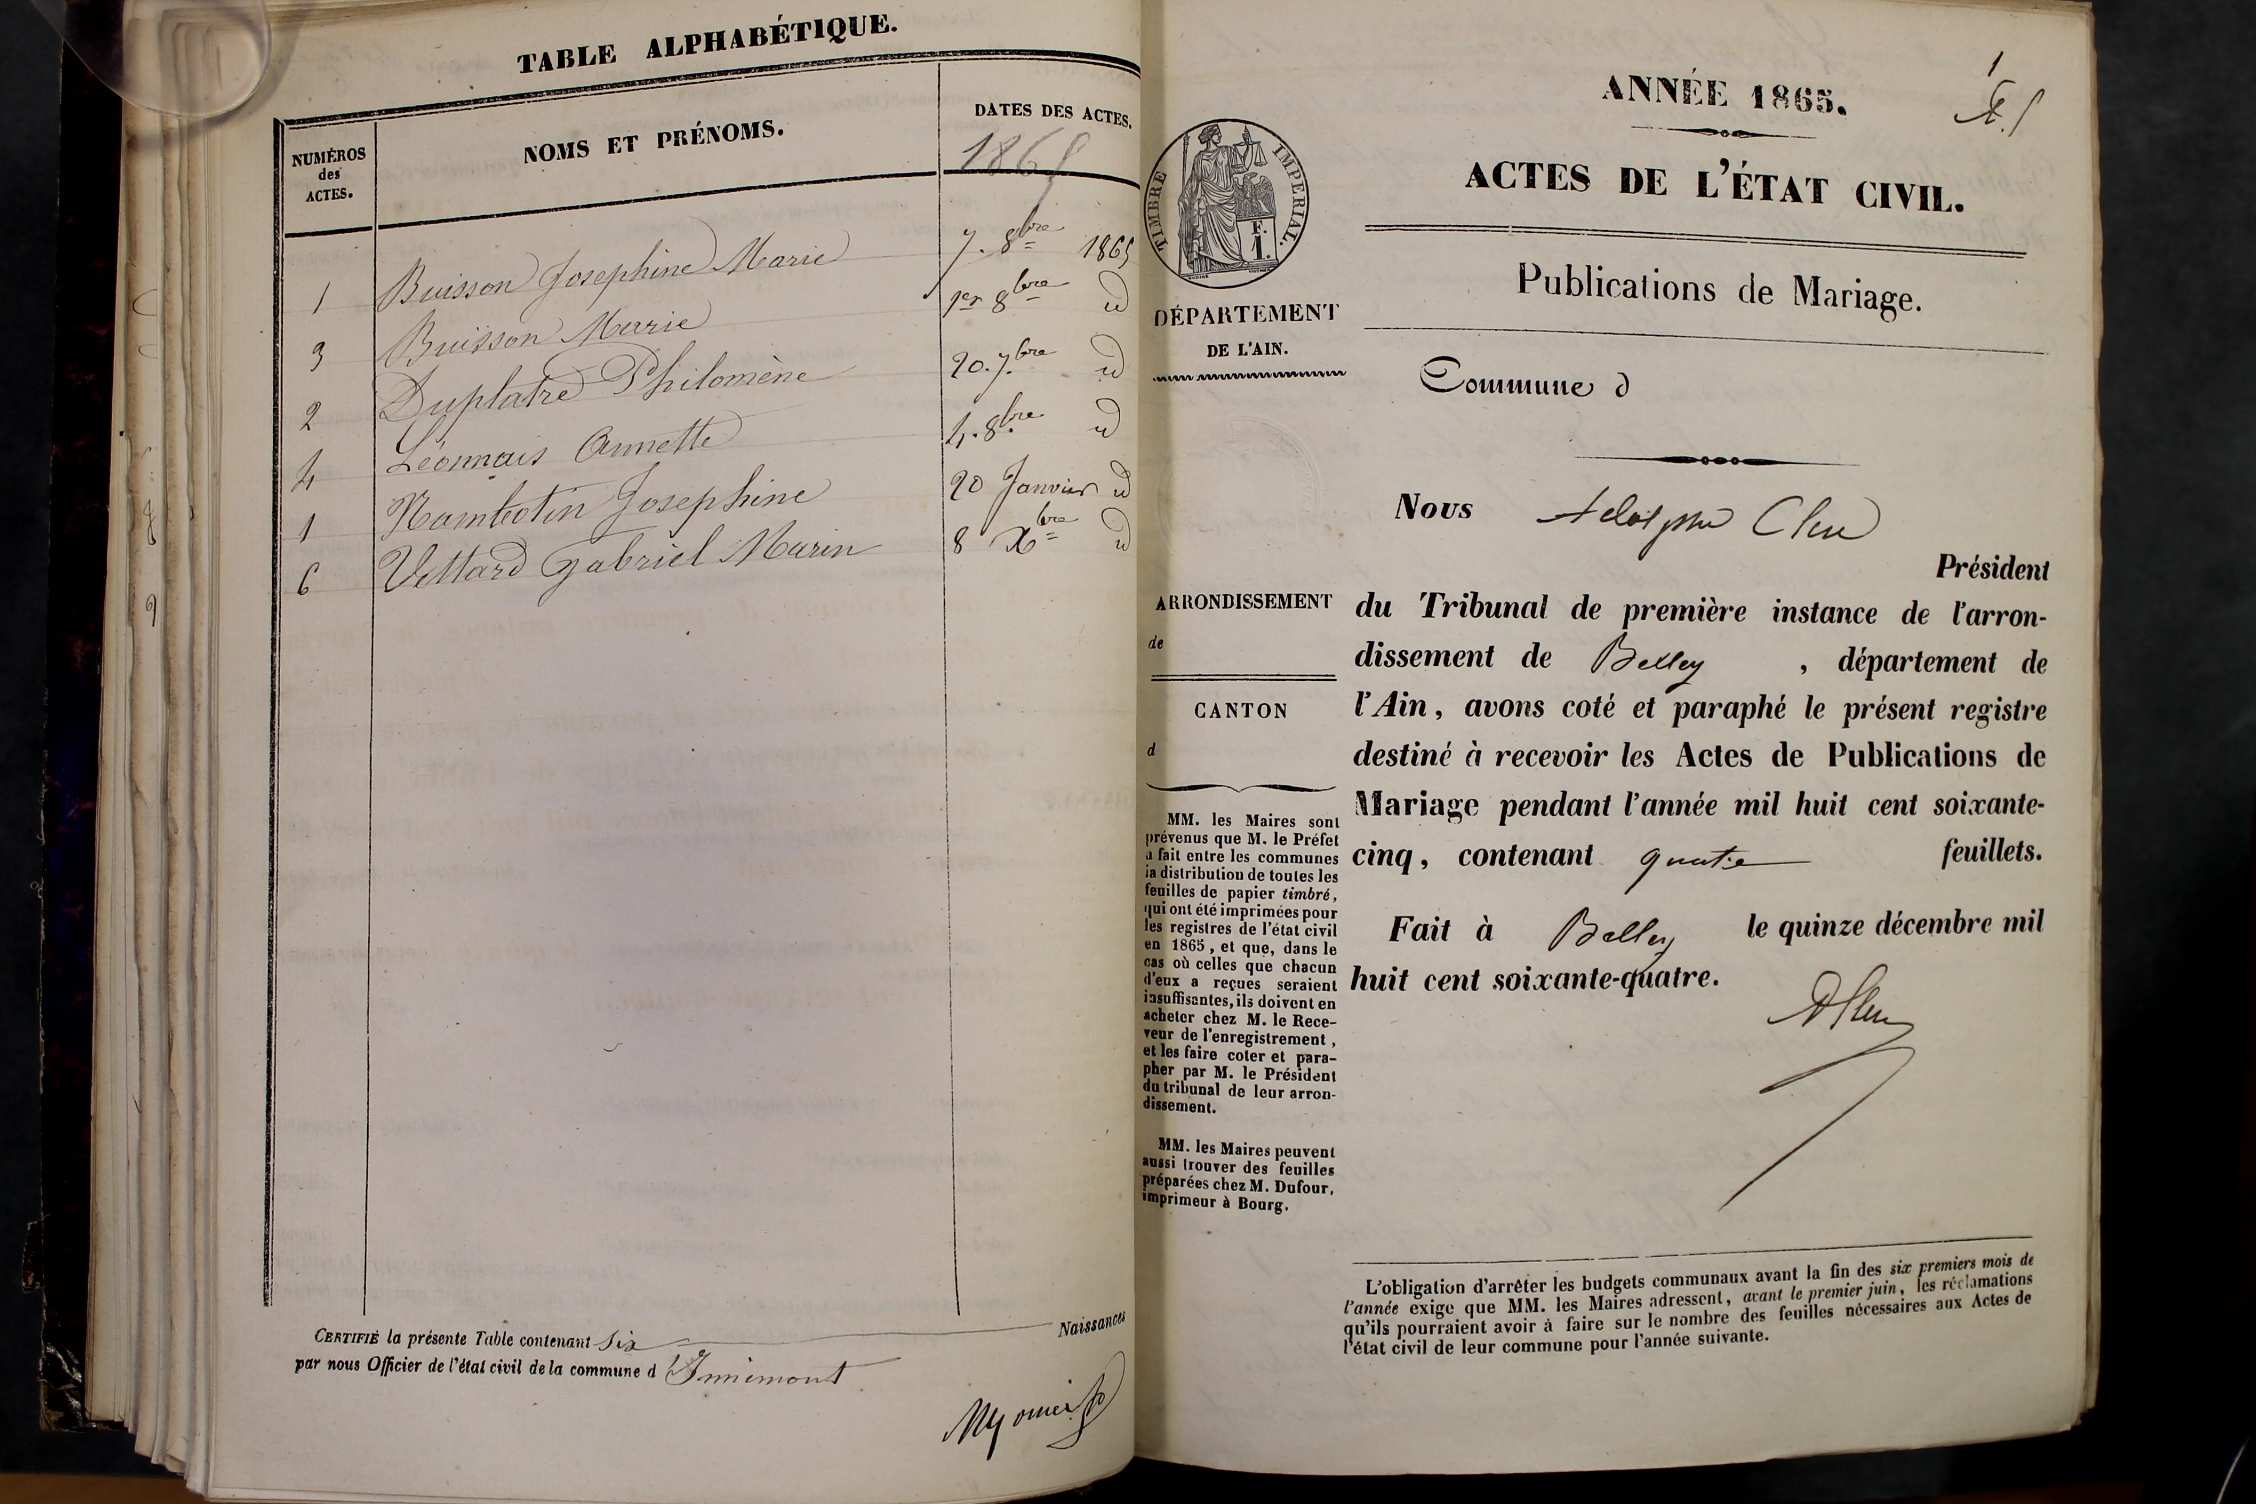 TABLE ALPHABÉTIQUE.
NUMÉROS
des
ACTES.
NOMS ET PRÉNOMS.
DATES DES ACTES.
1865
1 Buisson Josephine Marie 7. 8bre 1865
3 Buisson Marie 1er 8bre id
2 Duplatre Philomène 20. 7bre id
4 Léonnais Annette 4. 8bre id
1 Nambotin Josephine 20 Janvier id
6 Vettard Gabriel Marin 8 Xbre id
CERTIFIÉ la présente Table contenant Six Naissances
par nous Officier de l'état civil de la commune d'Innimont
ANNÉE 1865.
1
ACTES DE L'ÉTAT CIVIL.
TIMBRE IMPERIAL.
F.
1.
Publications de Mariage.
DÉPARTEMENT
DE L'AIN.
Commune d
Nous Adolphe Clerc
Président
ARRONDISSEMENT
de
CANTON
d
du Tribunal de première instance de l'arron-
dissement de Belley , département de
l'Ain, avons coté et paraphé le présent registre
destiné à recevoir les Actes de Publications de
Mariage pendant l'année mil huit cent soixante-
cinq, contenant quatre feuillets.
Fait à Belley le quinze décembre mil
huit cent soixante-quatre.
AClerc
MM. les Maires sont
prévenus que M. le Préfet
a fait entre les communes
la distribution de toutes les
feuilles de papier timbré,
qui ont été imprimées pour
les registres de l'état civil
en 1865, et que, dans le
cas où celles que chacun
d'eux a reçues seraient
insuffisantes, ils doivent en
acheter chez M. le Rece-
veur de l'enregistrement,
et les faire coter et para-
pher par M. le Président
du tribunal de leur arron-
dissement.
MM. les Maires peuvent
aussi trouver des feuilles
préparées chez M. Dufour,
imprimeur à Bourg.
L'obligation d'arrêter les budgets communaux avant la fin des six premiers mois de
l'année exige que MM. les Maires adressent, avant le premier juin, les réclamations
qu'ils pourraient avoir à faire sur le nombre des feuilles nécessaires aux Actes de
l'état civil de leur commune pour l'année suivante.